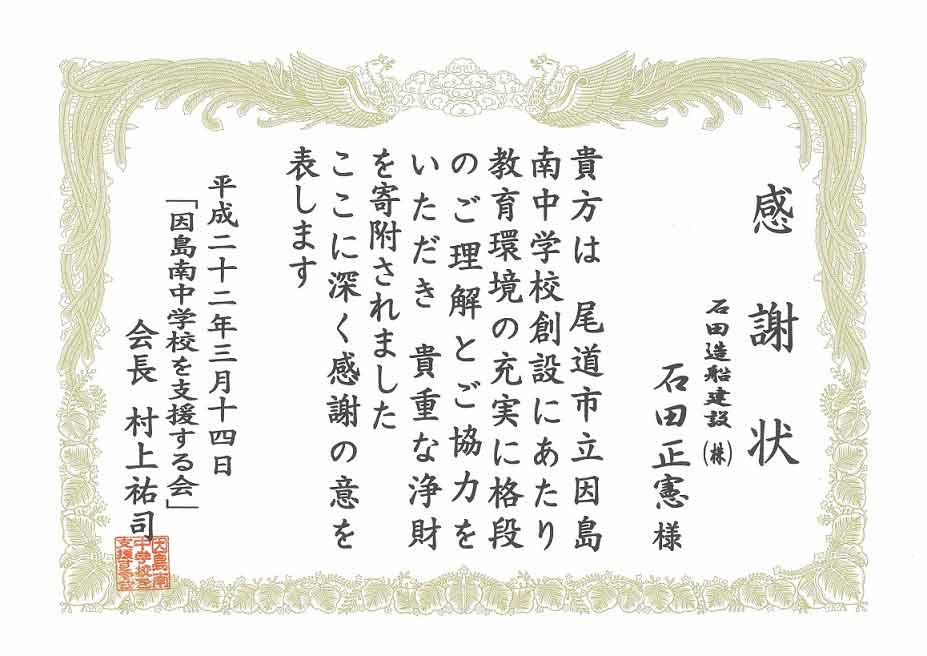 感謝状
石田造船建設(株)
石田正憲様
貴方は　尾道市立因島
南中学校創設にあたり
教育環境の充実に格段
のご理解とご協力を
いただき　貴重な浄財
を寄附されました
ここに深く感謝の意を
表します
平成二十二年三月十四日
「因島南中学校を支援する会」
会長 村上祐司
因島南
中学校を
支援する会